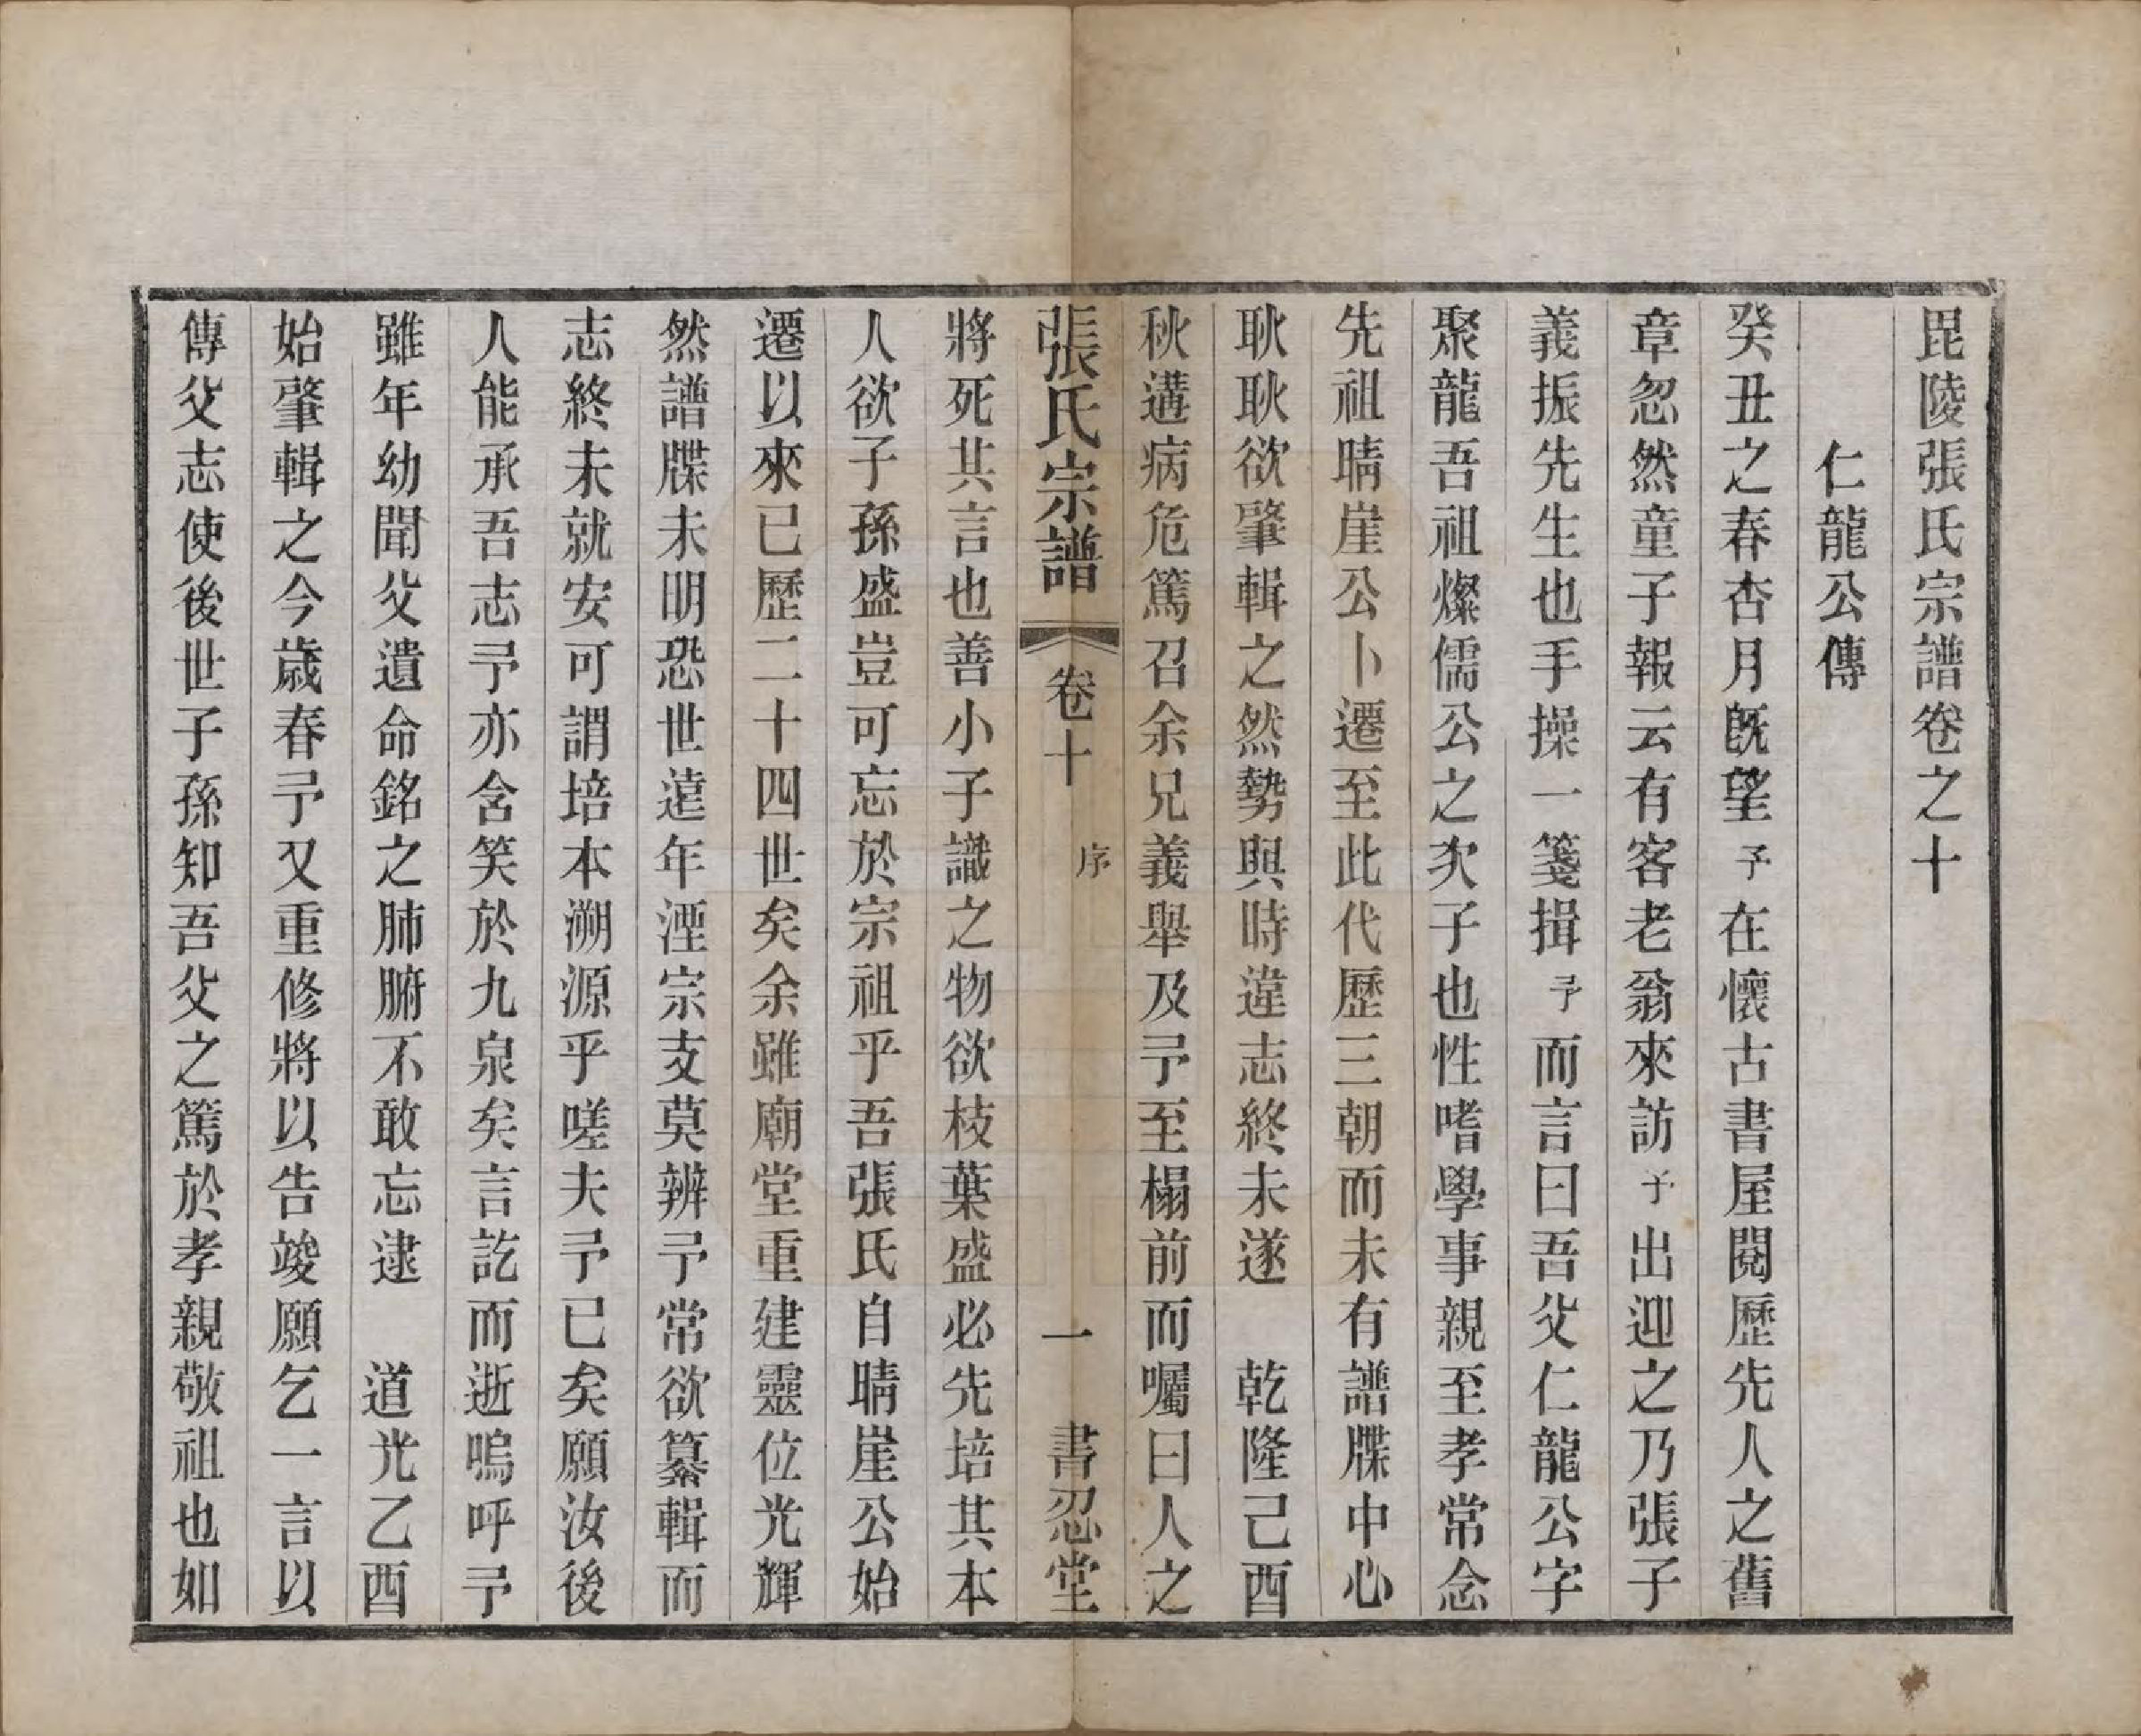 毘陵張氏宗譜卷之十
仁龍公傳
癸丑之春杏月既望予在懷古書屋閱歷先人之舊
章忽然童子報云有客老翁來訪予出迎之乃張子
義振先生也手操一箋揖予而言曰吾父仁龍公字
聚龍吾祖燦儒公之次子也性嗜學事親至孝常念
先祖晴崖公卜遷至此代歷三朝而未有譜牒中心
耿耿欲肇輯之然勢與時違志終未遂　乾隆己酉
秋遘病危篤召余兄義舉及予至榻前而囑曰人之
張氏宗譜　卷十　序　一　書忍堂
將死其言也善小子識之物欲枝葉盛必先培其本
人欲子孫盛豈可忘於宗祖乎吾張氏自晴崖公始
遷以來已歷二十四世矣余雖廟堂重建靈位光輝
然譜牒未明恐世遠年湮宗支莫辨予常欲纂輯而
志終未就安可謂培本溯源乎嗟夫予已矣願汝後
人能承吾志予亦含笑於九泉矣言訖而逝嗚呼予
雖年幼聞父遺命銘之肺腑不敢忘逮　道光乙酉
始肇輯之今歲春予又重修將以告竣願乞一言以
傳父志使後世子孫知吾父之篤於孝親敬祖也如